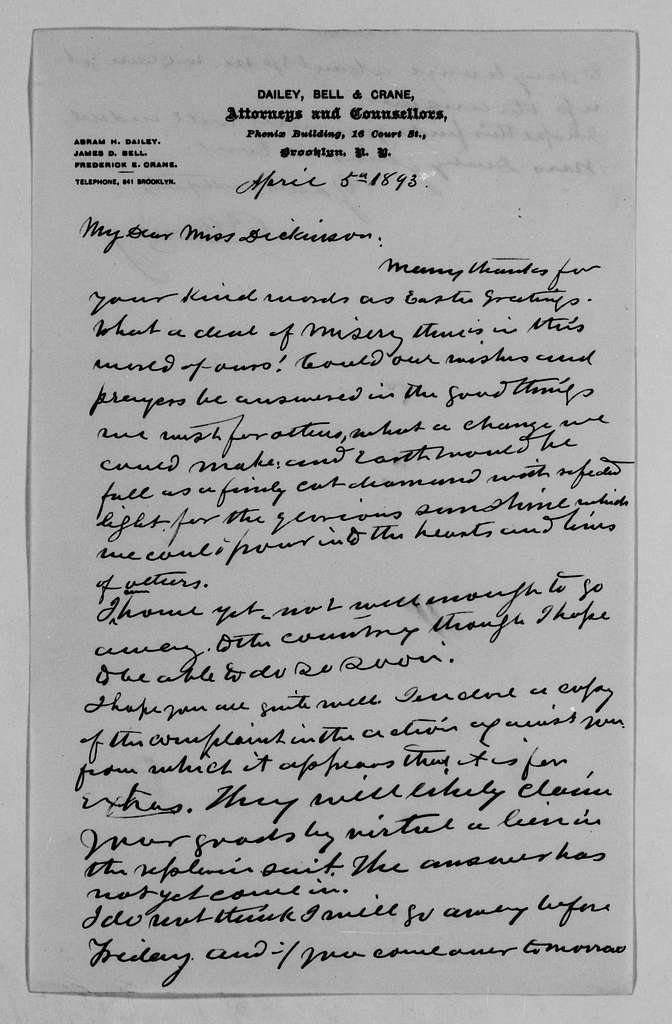 DAILEY, BELL & CRANE,
Attorneys and Counsellors,
Phenix Building, 16 Court St.,
Brooklyn, N. Y.
ABRAM H. DAILEY.
JAMES D. BELL.
FREDERICK E. CRANE.
TELEPHONE, 841 BROOKLYN.
April 5th 1893.
My Dear Miss Dickinson:
Many thanks for
your kind words as Easter Greetings.
What a deal of misery there is in this
world of ours! Could our wishes and
prayers be answered in the good things
we wish for others, what a change we
could make; and Earth would be
full as a finely cut diamond with refected
light for the glorious sunshine which
we could pour into the hearts and lives
of others.
I am home yet, not well enough to go
away to the country though I hope
to be able to do so soon.
I hope you are quite well. I enclose a copy
of the complaint in the action against you
from which it appears that it is for
Extras. They will likely claim
your goods by virtue a lien in
the replevin suit. The answer has
not yet come in.
I do not think I will go away before
Friday. and if you come over tomorrow